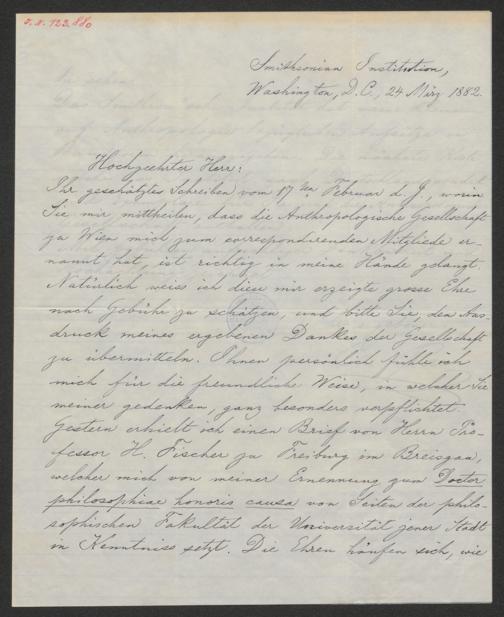 I. N. 123.880
Smithsonian Institution,
Washington, D. C., 24 März 1882.
Hochgeehrter Herr:
Ihr geschätztes Schreiben vom 17ten Februar d. J., worin
Sie mir mittheilen, dass die Anthropologische Gesellschaft
zu Wien mich zum correspondirenden Mitgliede er-
nannt hat, ist richtig in meine Hände gelangt.
Natürlich weiss ich diese mir erzeigte grosse Ehre
nach Gebühr zu schätzen, und bitte Sie, den Aus-
druck meines ergebenen Dankes der Gesellschaft
zu übermitteln. Ihnen persönlich fühle ich
mich für die freundliche Weise, in welcher Sie
meiner gedenken, ganz besonders verpflichtet.
Gestern erhielt ich einen Brief von Herrn Pro-
fessor H. Fischer zu Freiburg im Breisgau,
welcher mich von meiner Ernennung zum Doctor
philosophiae honoris causa von Seiten der philo-
sophischen Fakultät der Universität jener Stadt
in Kenntniss setzt. Die Ehren häufen sich, wie